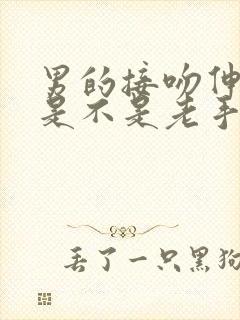 男的接吻伸
是不是老手
丢了一只黑狗